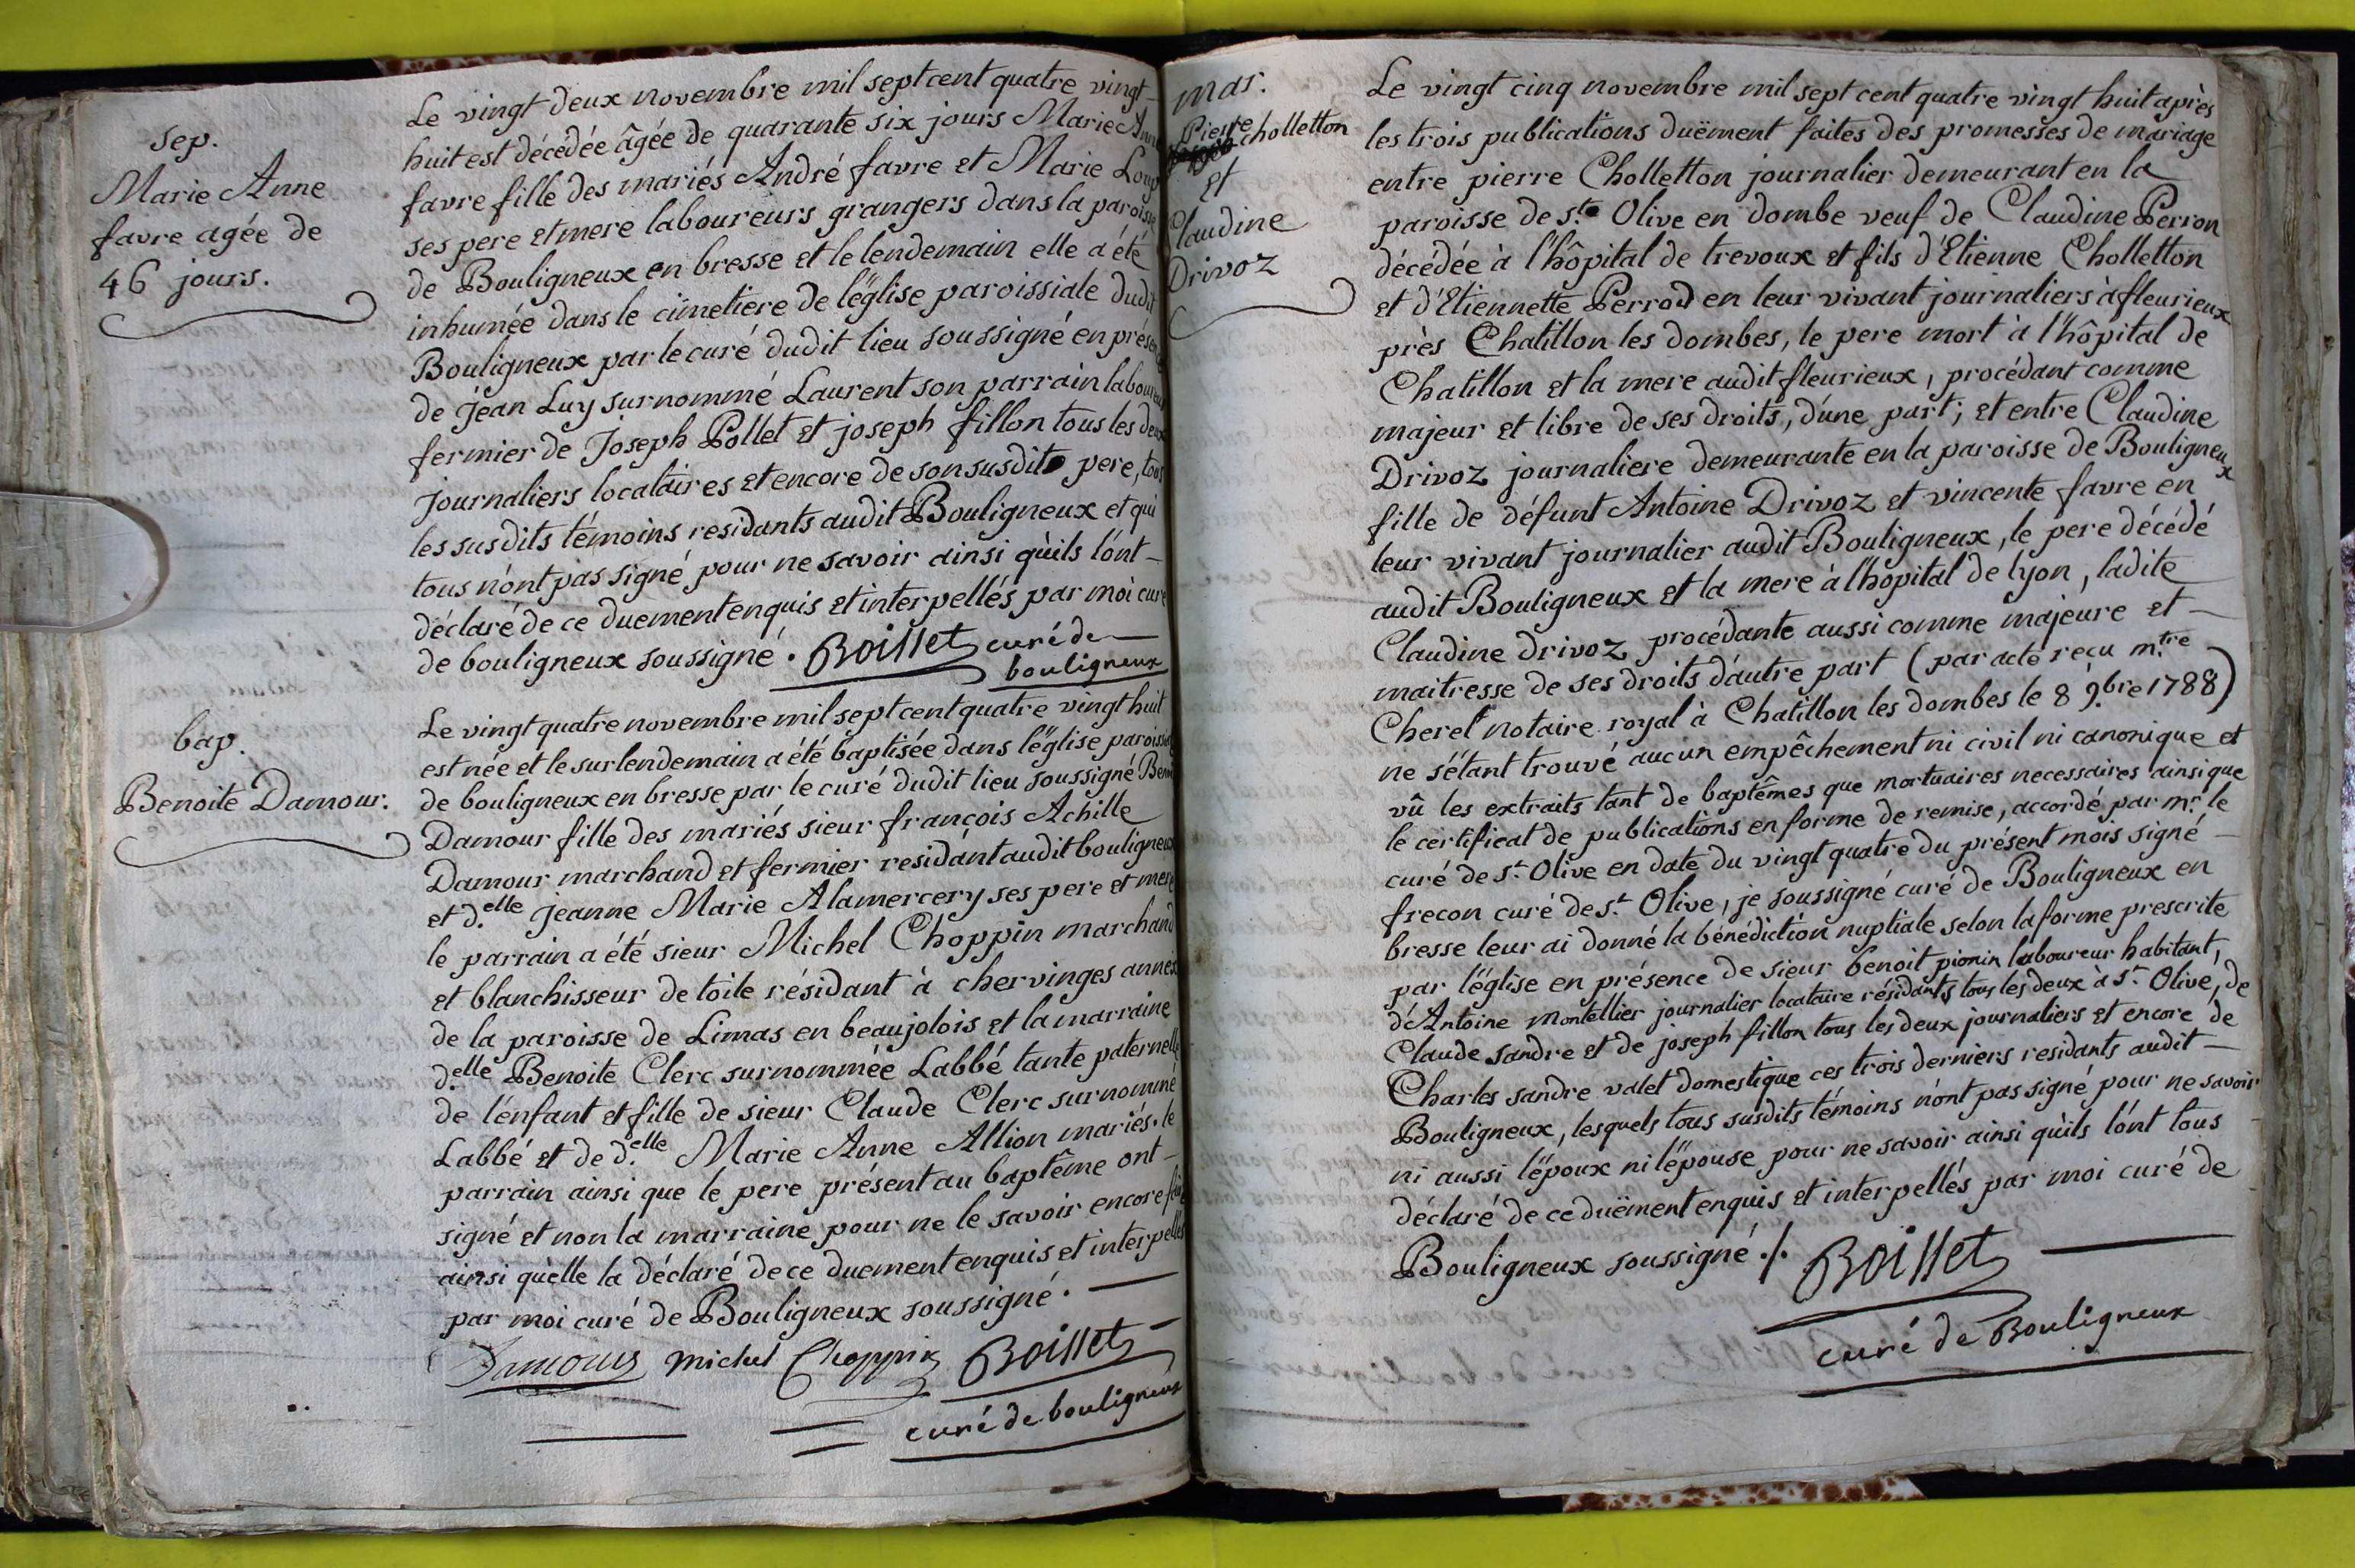 sep.
Marie Anne
favre agée de
46 jours.
Le vingt deux novembre mil sept cent quatre vingt-
huit est décédée âgée de quarante six jours Marie Anne
favre fille des mariés André favre et Marie Loup
ses pere et mere laboureurs grangers dans la paroisse
de Bouligneux en bresse et le lendemain elle a été
inhumée dans le cimetiere de l'église paroissiale dudit
Bouligneux par le curé dudit lieu soussigné en présence
de jean Luy surnommé Laurent son parrain laboureur
fermier de Joseph Pollet et joseph fillon tous les deux
journaliers locataires et encore de son susdit pere, tous
les susdits témoins residants audit Bouligneux et qui
tous n'ont pas signé pour ne savoir ainsi qu'ils l'ont-
déclaré de ce duement enquis et interpellés par moi curé
de bouligneux soussigné. Boillet curé de
bouligneux
bap.
Benoite Damour.
Le vingt quatre novembre mil sept cent quatre vingt huit
est née et le surlendemain a été baptisée dans l'église paroissiale
de bouligneux en bresse par le curé dudit lieu soussigné
Damour fille des mariés sieur françois Achille
Damour marchand et fermier residant audit bouligneux
et d.elle Jeanne Marie Alamercery ses pere et mere
le parrain a été sieur Michel Choppin marchand
et blanchisseur de toile résidant à chervinges annexe
de la paroisse de Limas en beaujolois et la marraine
d.elle Benoite Clerc surnommée Labbé tante paternelle
de l'enfant et fille de sieur Claude Clerc surnommé
Labbé et de d.elle Marie Anne Allion mariés. le
parrain ainsi que le pere présent au baptême ont-
signé et non la marraine pour ne le savoir encore faire
ainsi qu'elle la déclaré de ce duement enquis et interpellés
par moi curé de Bouligneux soussigné.
Damour michel Choppin Boillet
curé de bouligneux
mar.
Pierre cholletton
et
Claudine
Drivoz
Le vingt cinq novembre mil sept cent quatre vingt huit après
les trois publications duëment faites des promesses de mariage
entre pierre Cholletton journalier demeurant en la
paroisse de s.te Olive en dombe veuf de Claudine Perron
décédée à l'hôpital de trevoux et fils d'Etienne Cholletton
et d'Etiennette Perrod en leur vivant journaliers à fleurieux
près Chatillon les dombes, le pere mort à l'hôpital de
Chatillon et la mere audit fleurieux, procédant comme
majeur et libre de ses droits, d'une part; et entre Claudine
Drivoz journaliere demeurante en la paroisse de Bouligneux
fille de défunt Antoine Drivoz et vincente favre en
leur vivant journalier audit Bouligneux, le pere décédé
audit Bouligneux et la mere à l'hopital de lyon, ladite
Claudine Drivoz procédante aussi comme majeure et-
maitresse de ses droits d'autre part (par acte reçu m.tre
Cherel notaire royal à Chatillon les dombes le 8 9.bre 1788)
ne s'étant trouvé aucun empêchement ni civil ni canonique et
vû les extraits tant de baptêmes que mortuaires necessaires ainsi que
le certificat de publications en forme de remise, accordé par m.r le
curé de s.t Olive en date du vingt quatre du présent mois signé
frecon curé de s.t Olive, je soussigné curé de Bouligneux en
bresse leur ai donné la bénédiction nuptiale selon la forme prescrite
par l'église en présence de sieur benoit pionin laboureur habitant,
d'Antoine Montellier journalier locataire résidants tous les deux à s.t Olive, de
Claude sandre et de joseph fillon tous les deux journaliers et encore de
Charles sandre valet domestique ces trois derniers residants audit-
Bouligneux, lesquels tous susdits témoins n'ont pas signé pour ne savoir
ni aussi l'époux ni l'épouse pour ne savoir ainsi qu'ils l'ont tous
déclaré de ce duëment enquis et interpellés par moi curé de
Bouligneux soussigné ./. Boillet
curé de Bouligneux